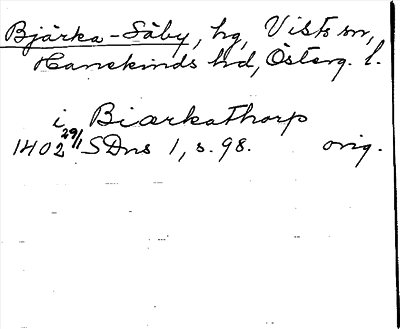 Bjärka-Säby, hg, Vists sn,
Hanekinds hd, Österg. l.
i Biærkathorp
1402 29/1 SDns 1, s. 98. orig.